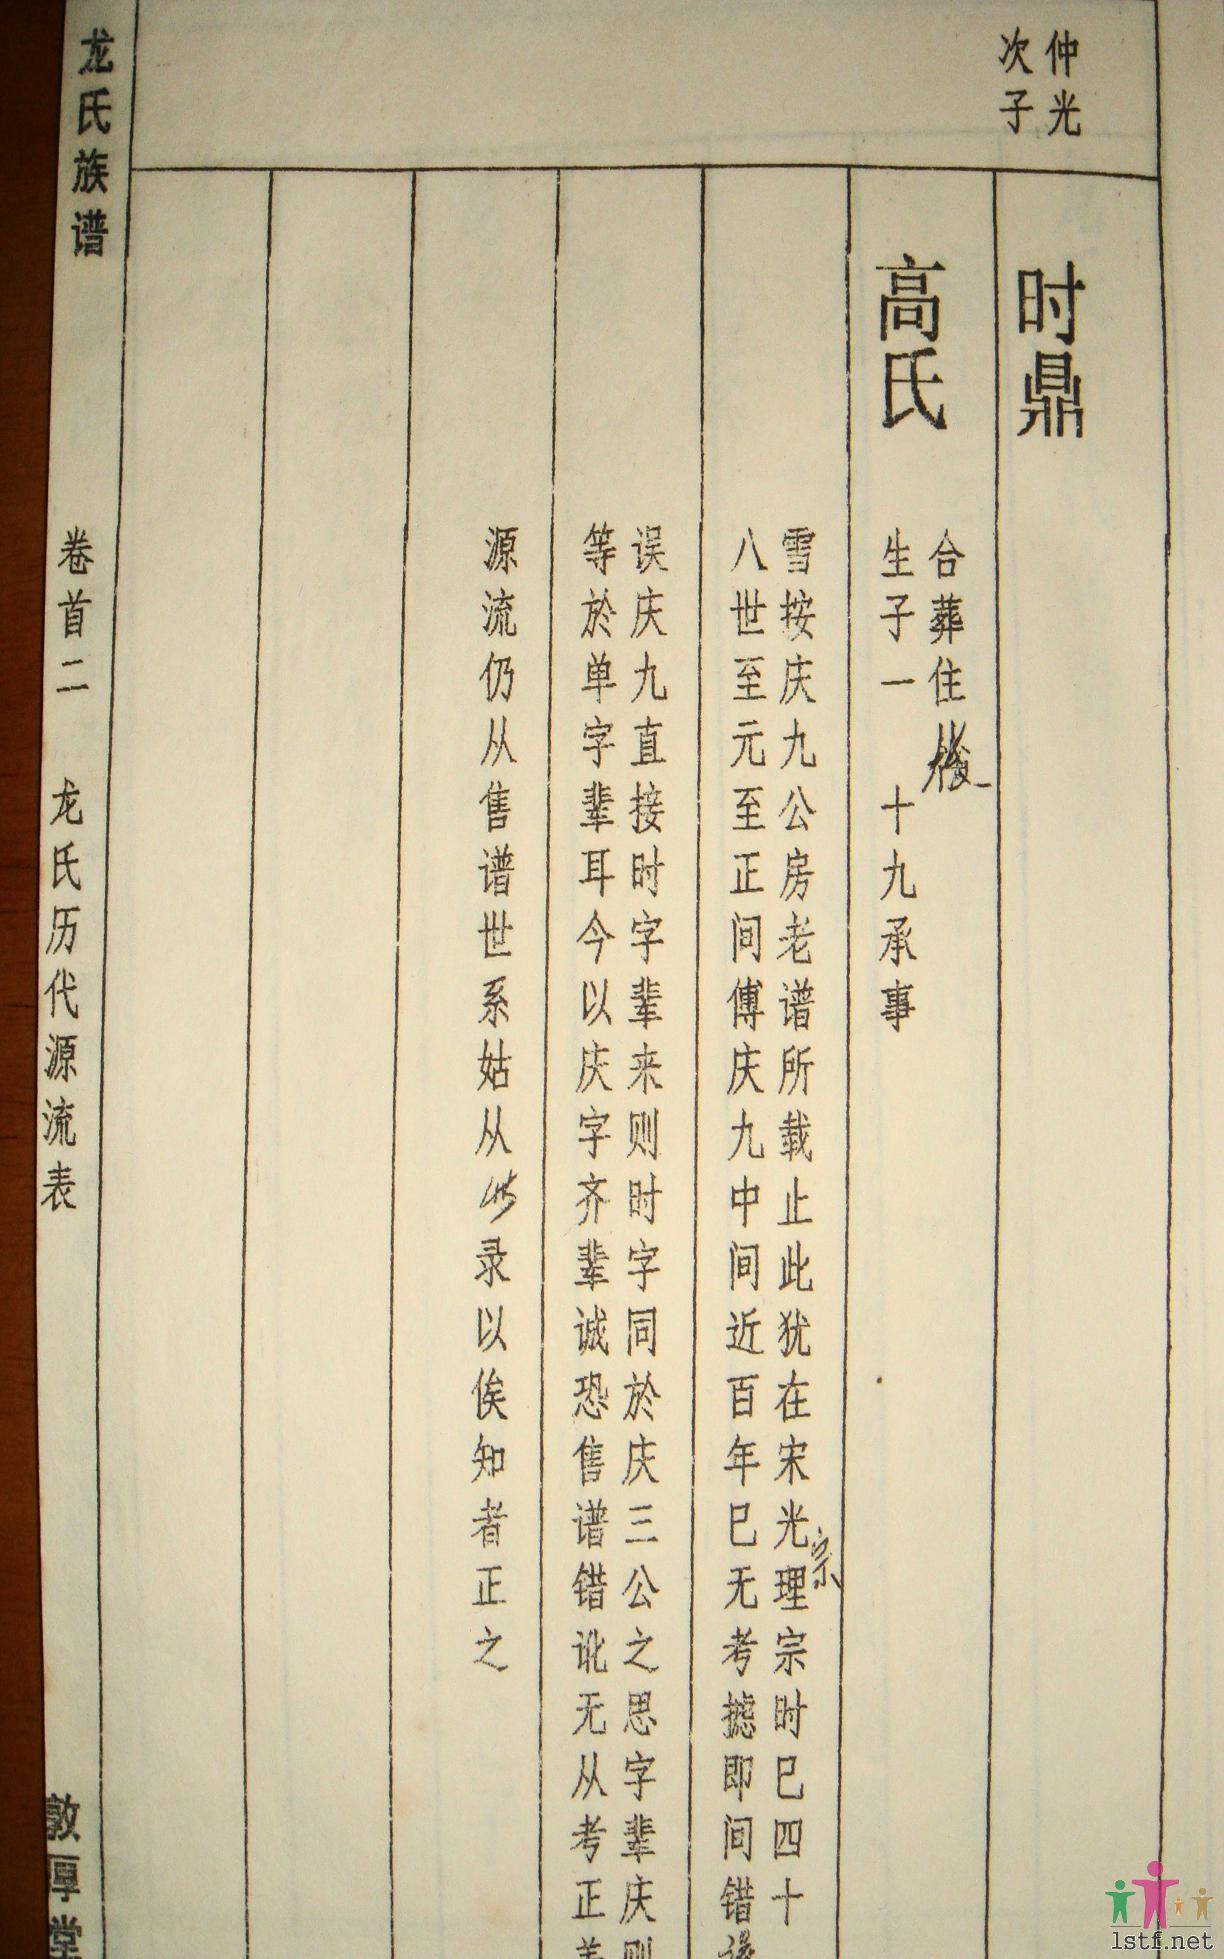 仲光
次子
时鼎
高氏
合葬住后
生子一 十九承事
雪按庆九公房老谱所载止此犹在宋光宗理宗时已四十
八世至元至正间傅庆九中间近百年已无考摅即间错
误庆九直接时字辈来则时字同於庆三公之思字辈庆则
等於单字辈耳今以庆字齐辈诚恐售谱错讹无从考正
源流仍从售谱世系姑从 录以俟知者正之
龙氏族谱
卷首二 龙氏历代源流表
敦厚堂
1stf.net